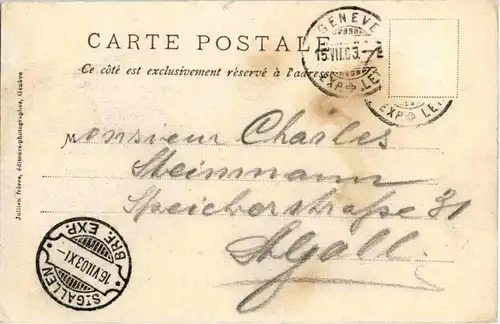 CARTE POSTALE
Ce côté est exclusivement réservé à l'adresse
GENÈVE
15.VII.03.-7
EXP. LET
EXP. LET
Monsieur Charles
Steinmann
Speicherstraße 31
St. Gall.
ST. GALLEN
16.VII.03.XI-
BRF. EXP.
Jullien frères, éditeurs-photographes, Genève